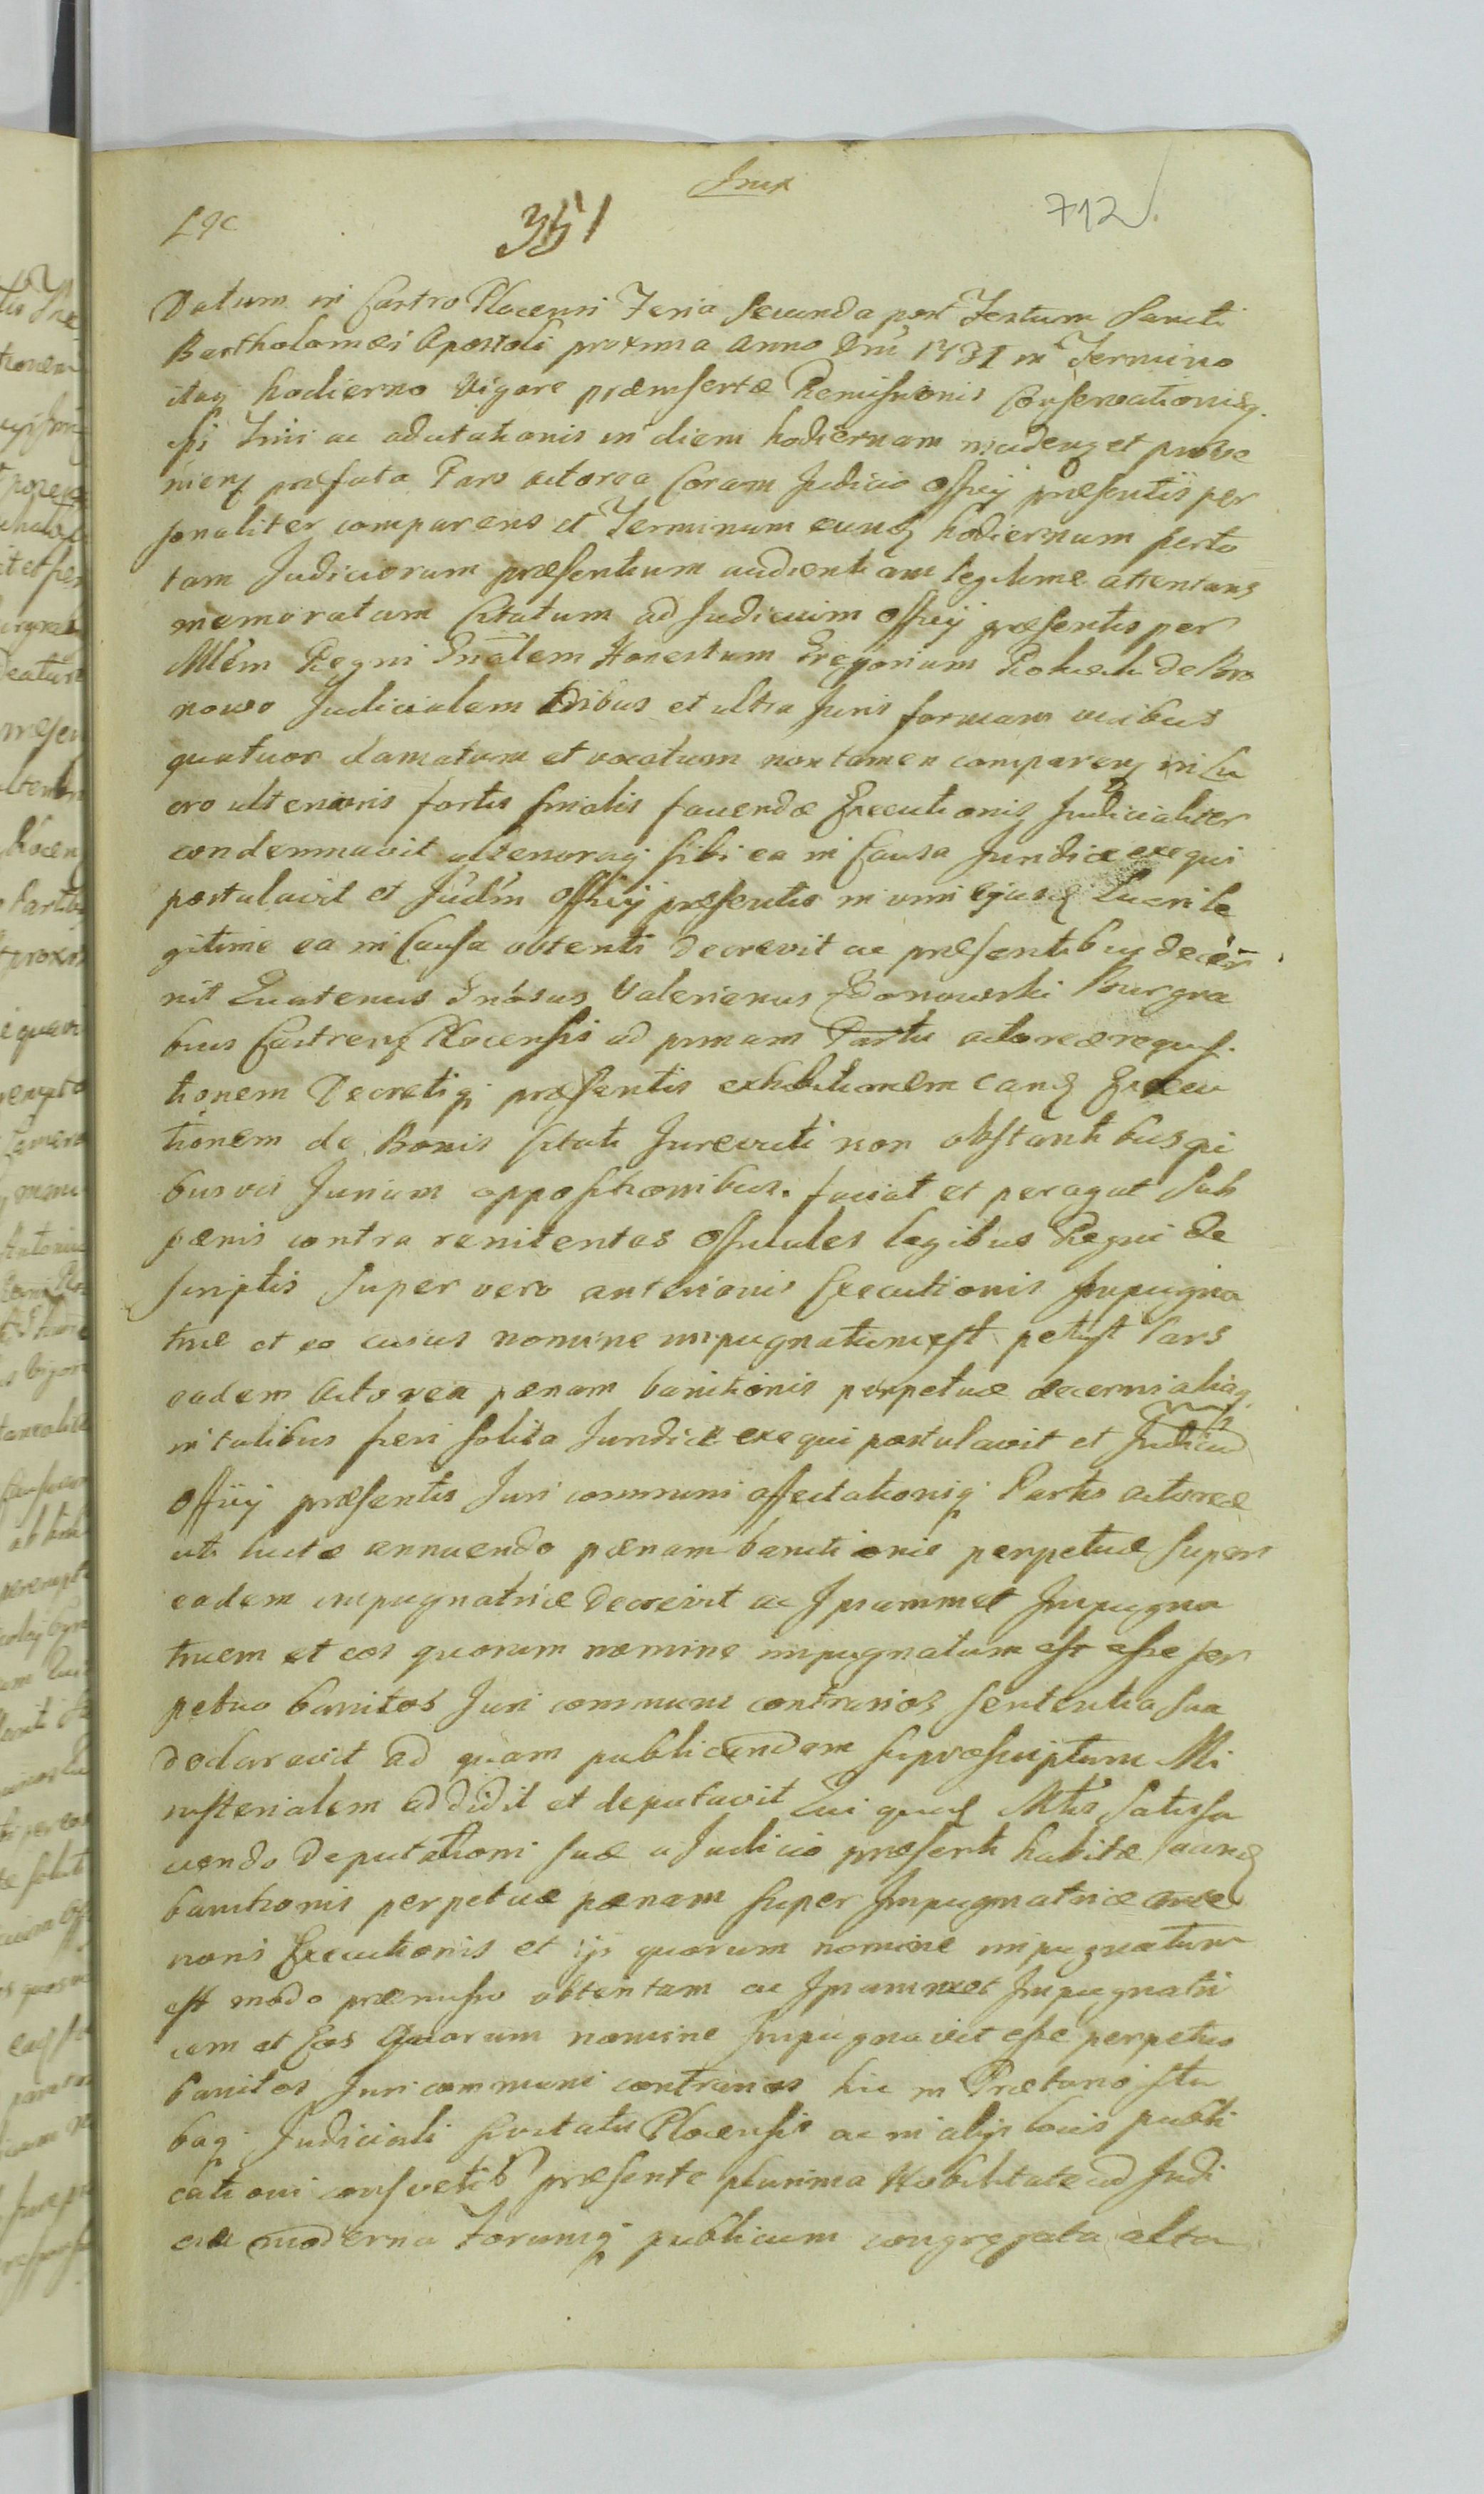 712
351
Datum in Castro Plocensi Feria Secunda post Festum Sancti
Bartholomæi Apostoli proxima Anno Dni 1731 in Termino
itaq hodierno Vigore præinsertæ Remissionis Conservationisq.
ssi Tnni ac adcitationis in diem hodiernam incidenȝ et prove
nienȝ præfata Pars actorea Coram Judicio Offycij præsentis per
sonaliter comparens et Terminum eundȝ hodiernum perto
tam Judiciorum præsentium audientiam legitime attentans
memoratum Citatum ad Judicium Officij præsentis per
Mlem Regni Gnalem Honestum Gregorium de Bro
nowo Judicialem tribus et ultra Juris formam vicibus
quatuor clamatum et vocatum non tamen comparenȝ in Lu
cro ulterioris fortis finalis faciendæ Executionis Judicialiter
condemnavit ulterioraq sibi ea in Causa Juridice exequi
postulavit et Judm Officij præsentis in vim ejusdȝ Lucri le
gitime ea in Causa obtenti decrevit ac præsentibus decer
nit Quatenus Gnosus Valerianus Burgra
bius Castrenȝ Plocensis ad primam Partis actoreæ requisi
tionem Decretiq præsentis exhibitionem eandȝ Execu
tionem de Bonis Citati Jurevicti non obstantibus qui
busvis Jurium oppositionibus. faciat et peragat Sub
pænis contra renitentes Officiales legibus Regni de
scriptis Super vero anterioris Executionis Impugna
trice et eo cuius nomine impugnatum est petijt Pars
eadem Actorea pænam banitionis perpetuæ decerni aliaq
in talibus fieri solita Juridice exequi postulavit et Judicium
Officij præsentis Juri communi affectationiq Partis actoreæ
uti justæ annuendo pænam banitionis perpetuæ super
eadem impugnatrice decrevit ac Ipsammet Impugna
tricem et eos quorum nomine impugnatum est esse per
petuo banitos Juri communi contrarios sententia sua
declaravit ad quam publicandam supræscriptum Mi
nisterialem addidit et deputavit Qui quidȝ Mtlis satisfa
ciendo Deputationi suæ a Judicio præsenti habitæ eandȝ
banitionis perpetuæ pænam super Impugnatrice ante
rioris Executionis et ijs quorum nomine impugnatum
est modo præmisso obtentam ac Ipsammet Impugnatri
cem et Eos Quorum nomine Impugnavit esse perpetuo
banitos Juri communi contrarios hic in Prætorio stu
baq Judiciali Civitatis Plocensis ac in alijs locis publi
cationi consvetis præsente plurima Nobilitate ad Judi
cia moderna Forumq publicum congregata alta